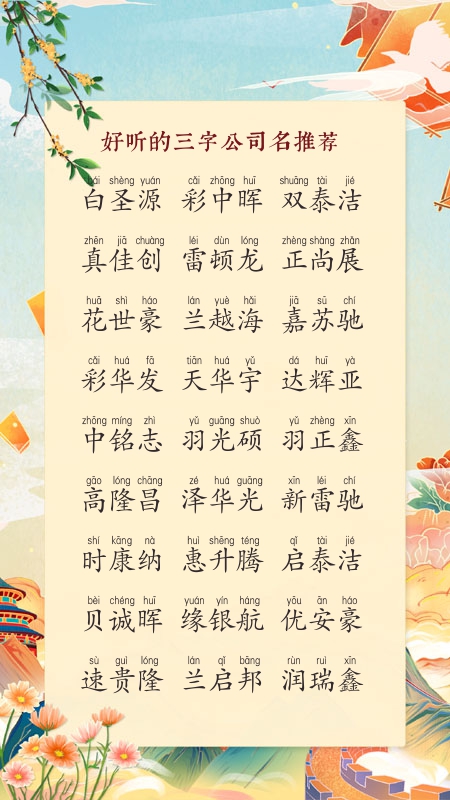 好听的三字公司名推荐
bái shèng yuán cǎi zhōng huī shuāng tài jié
白圣源 彩中晖 双泰洁
zhēn jiā chuàng léi dùn lóng zhèng shàng zhǎn
真佳创 雷顿龙 正尚展
huā shì háo lán yuè hǎi jiā sū chí
花世豪 兰越海 嘉苏驰
cǎi huá fā tiān huá yǔ dá huī yà
彩华发 天华宇 达辉亚
zhōng míng zhì yǔ guāng shuò yǔ zhèng xīn
中铭志 羽光硕 羽正鑫
gāo lóng chāng zé huá guāng xīn léi chí
高隆昌 泽华光 新雷驰
shí kāng nà huì shēng téng qǐ tài jié
时康纳 惠升腾 启泰洁
bèi chéng huī yuán yín háng yōu ān háo
贝诚晖 缘银航 优安豪
sù guì lóng lán qǐ bāng rùn ruì xīn
速贵隆 兰启邦 润瑞鑫